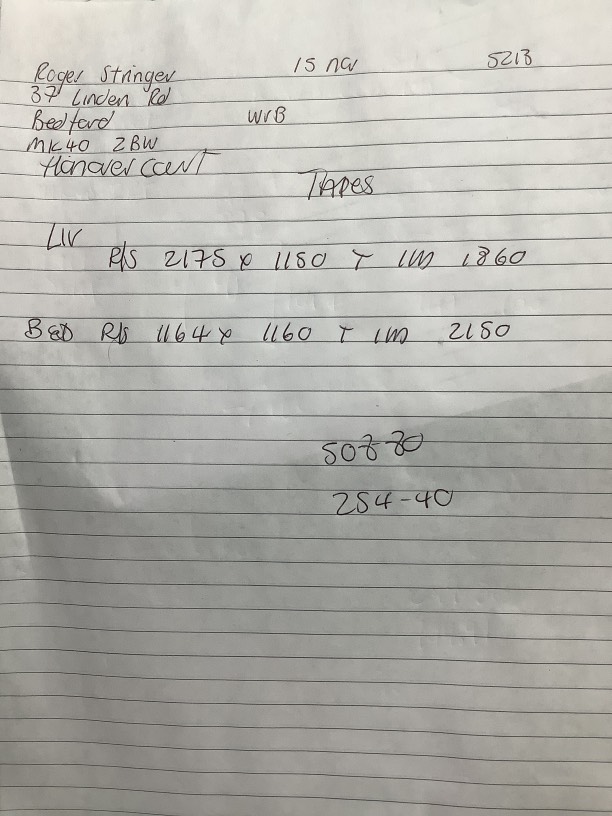 Roger Stringer 15 nw 5213
37 Linden Rd
Bedford WVB
MK40 2BW
Hanover court
TAPES
LIV
R/S 2175 x 1150 T 1M 1860
BED R/S 1164 x 1160 T 1M 2150
508-80
254-40